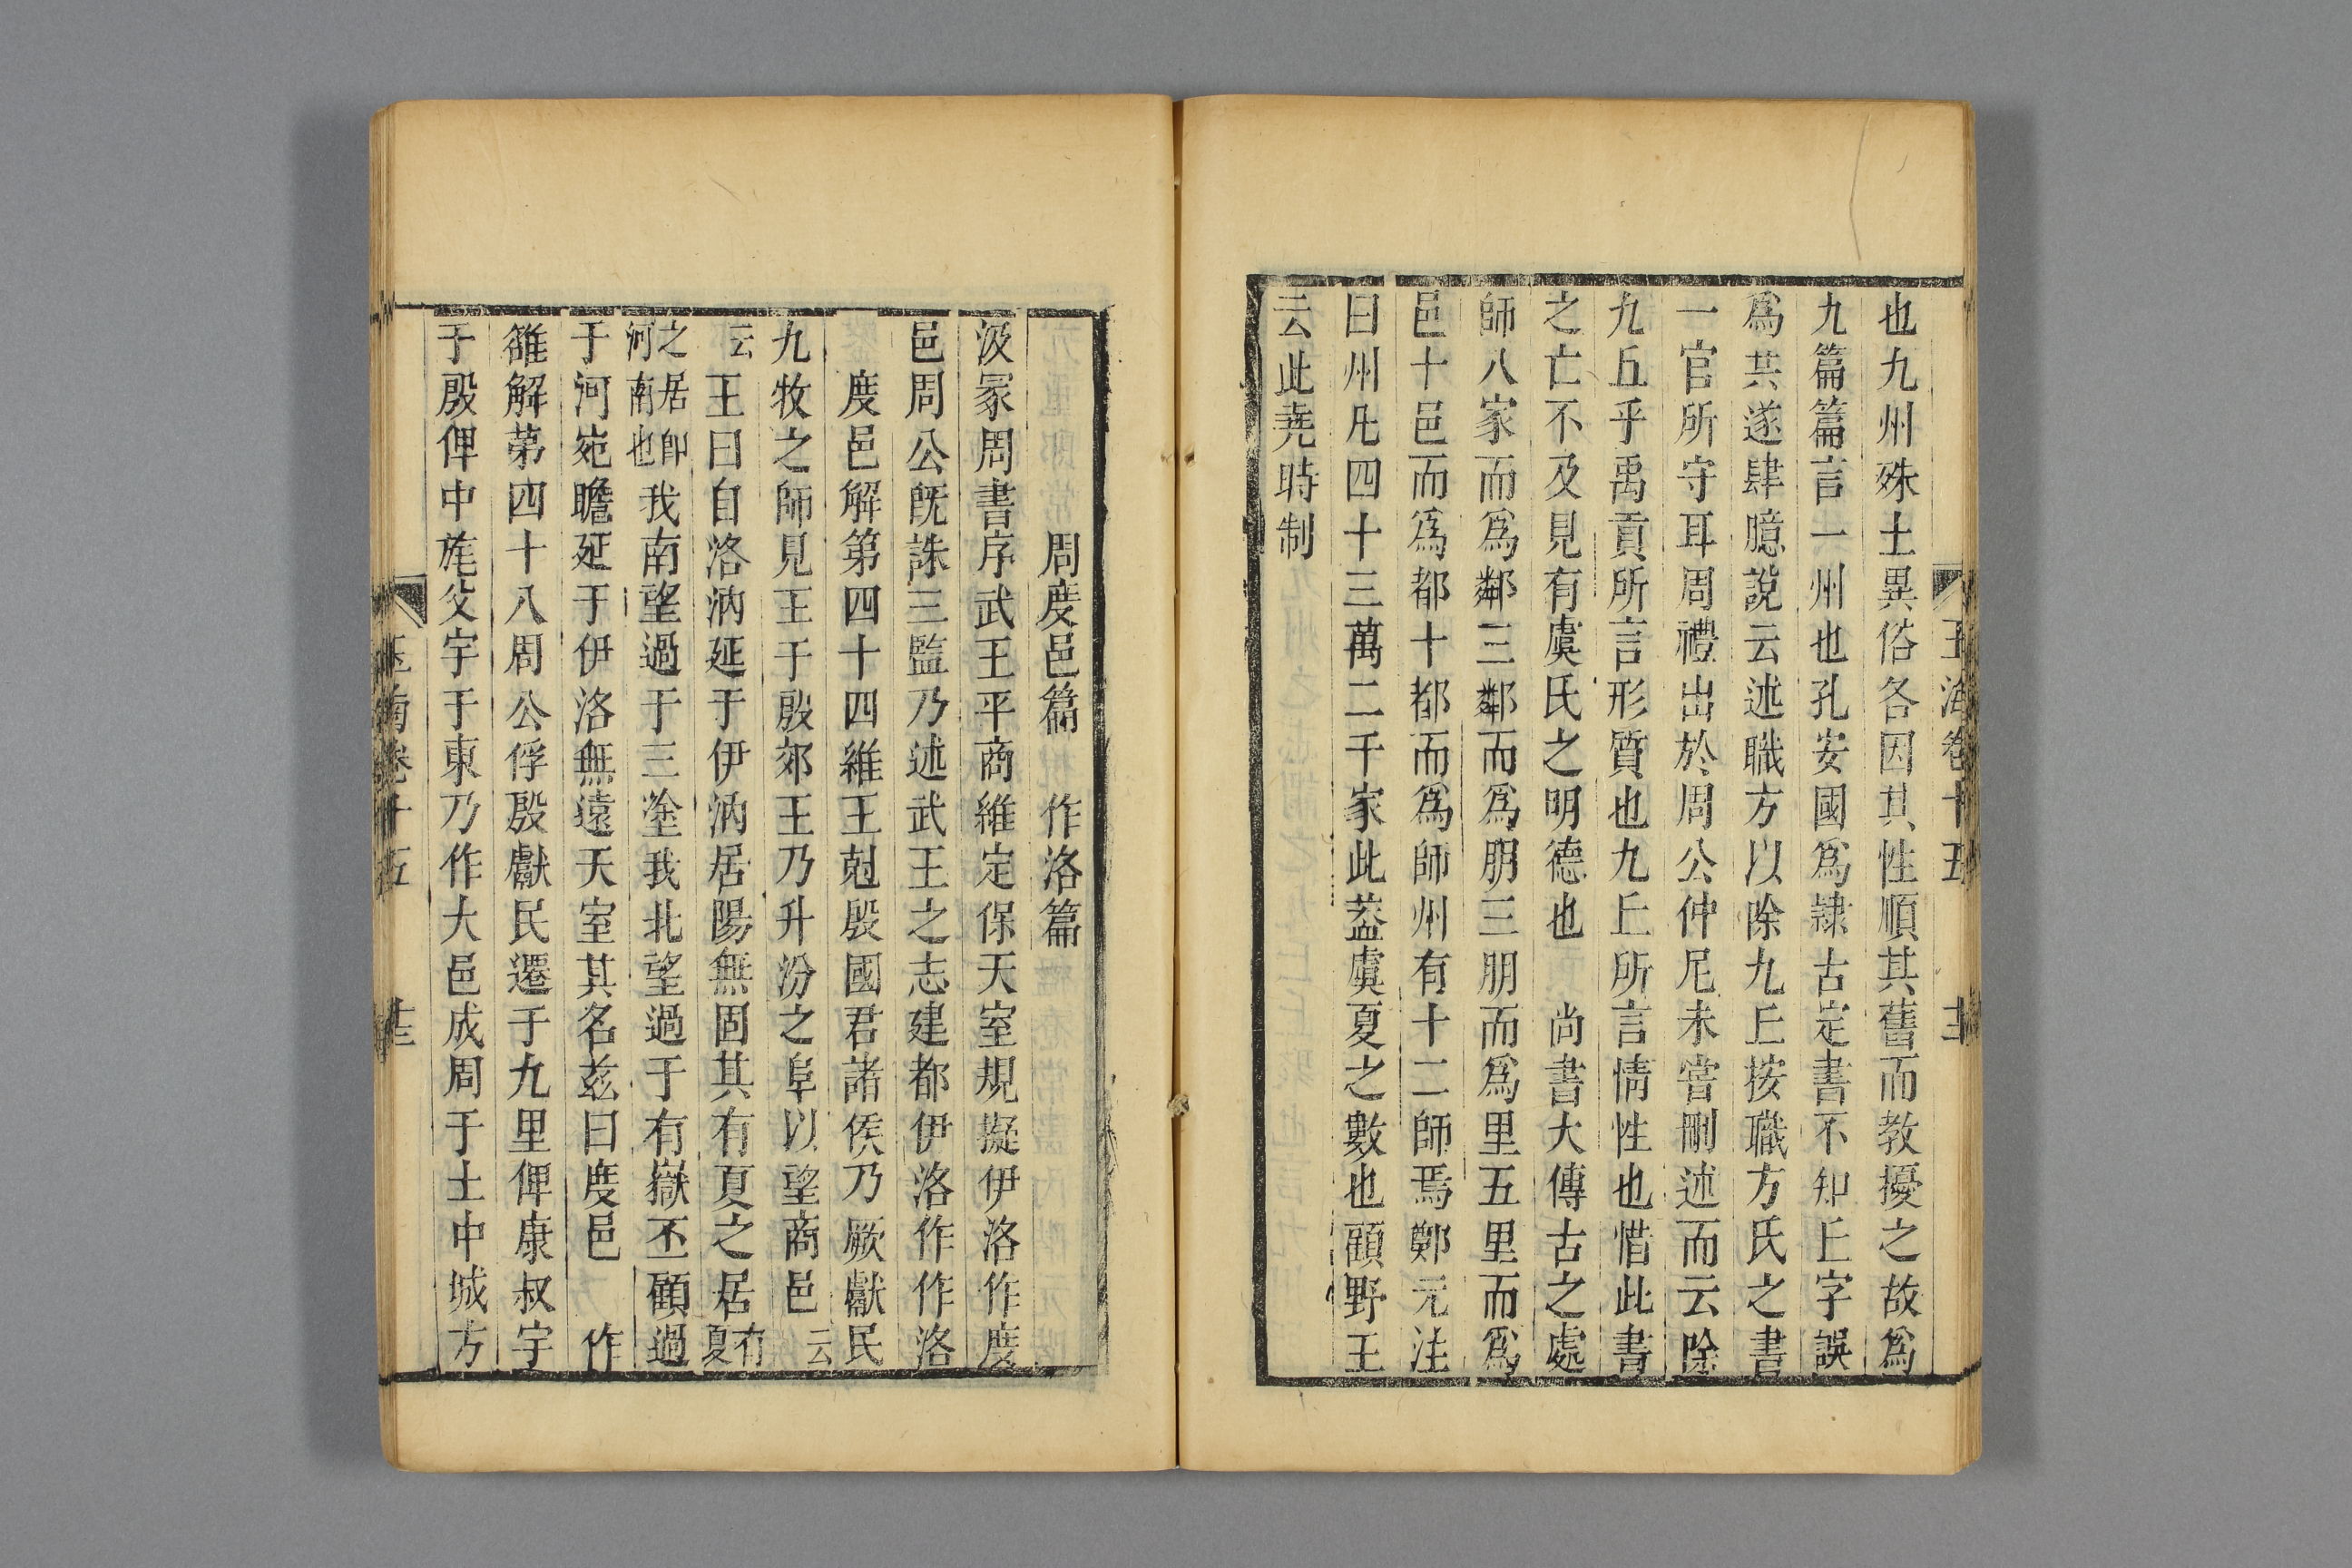 玉海卷十五
也九州殊土異俗各因其性順其舊而教擾之故爲
九篇篇言一州也孔安國爲隷古定書不知丘字誤
爲共遂肆臆說云述職方以除九丘按職方氏之書
一官所守耳周禮出於周公仲尼未嘗刪述而云除
九丘乎禹貢所言形質也九丘所言情性也惜此書
之亡不及見有虞氏之明德也　尚書大傳古之處
師八家而爲鄰三鄰而爲朋三朋而爲里五里而爲
邑十邑而爲都十都而爲師州有十二師焉鄭元注
曰州凡四十三萬二千家此葢虞夏之數也顧野王
云此堯時制
周度邑篇　作洛篇
汲冢周書序武王平商維定保天室規擬伊洛作度
邑周公旣誅三監乃述武王之志建都伊洛作作洛
度邑解第四十四維王尅殷國君諸侯乃厥獻民
九牧之師見王于殷郊王乃升汾之阜以望商邑云
云王曰自洛汭延于伊汭居陽無固其有夏之居有夏
之居卽河南也我南望過于三塗我北望過于有嶽丕顧過
于河宛瞻延于伊洛無遠天室其名兹曰度邑　作
雒解第四十八周公俘殷獻民遷于九里俾康叔宇
于殷俾中旄父宇于東乃作大邑成周于土中城方
卷十五